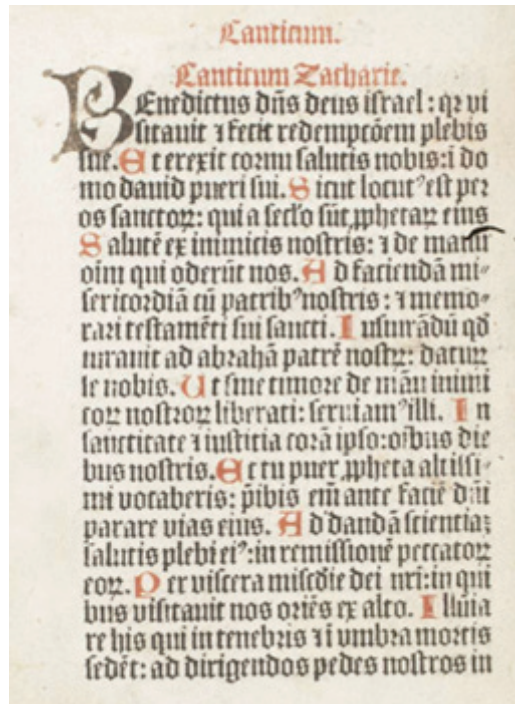 Canticum.
Canticum Zacharie.
BEnedictus dn̄s deus israel : qꝛ vi
sitauit ⁊ fecit redempcōem plebis
sue. Et erexit cornu salutis nobis: ī do
mo dauid pueri sui. Sicut locutꝰ est per
os sanctoꝝ: qui a secl̓o sūt ꝓphetaꝝ eius
Salutē ex inimicis nostris: ⁊ de manu
oīm qui oderūt nos. Ad faciendā mi⸗
sericordiā cū patribꝰ nostris : ⁊ memo⸗
rari testamēti sui sancti. Iusiurādū qd̄
iurauit ad abrahā patrē nostꝝ: datur
le nobis. Ut sine timore de māu inimi
coꝝ nostroꝝ liberati: seruiamꝰ illi. In
sanctitate ⁊ iusticia corā ipso: oībus die
bus nostris. Et tu puer ꝓpheta altissi⸗
mi vocaberis: p̄ibis em̄ ante faciē dn̄i
parare vias eius. Ad dandā scientiaꝫ
salutis plebi eiꝰ: in remissionē peccatoꝝ
eoꝝ. Per viscera misc̄die dei nr̄i: in qui
bus visitauit nos oriēs ex alto. Illuīa
re his qui in tenebris ⁊ ī vmbra mortis
sedēt: ad dirigendos pedes nostros in